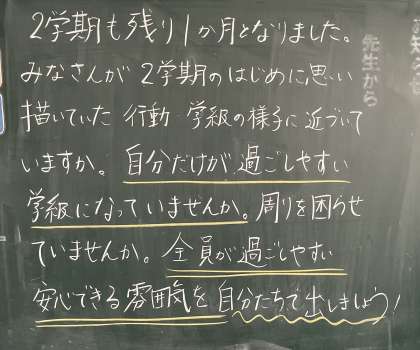 2学期も残り1か月となりました。
みなさんが2学期のはじめに思い
描いていた 行動 学級の様子に近づいて
いますか。自分だけが過ごしやすい
学級になっていませんか。周りを困らせ
ていませんか。全員が過ごしやすい
安心できる雰囲気を自分たちで出しましょう!
先生から